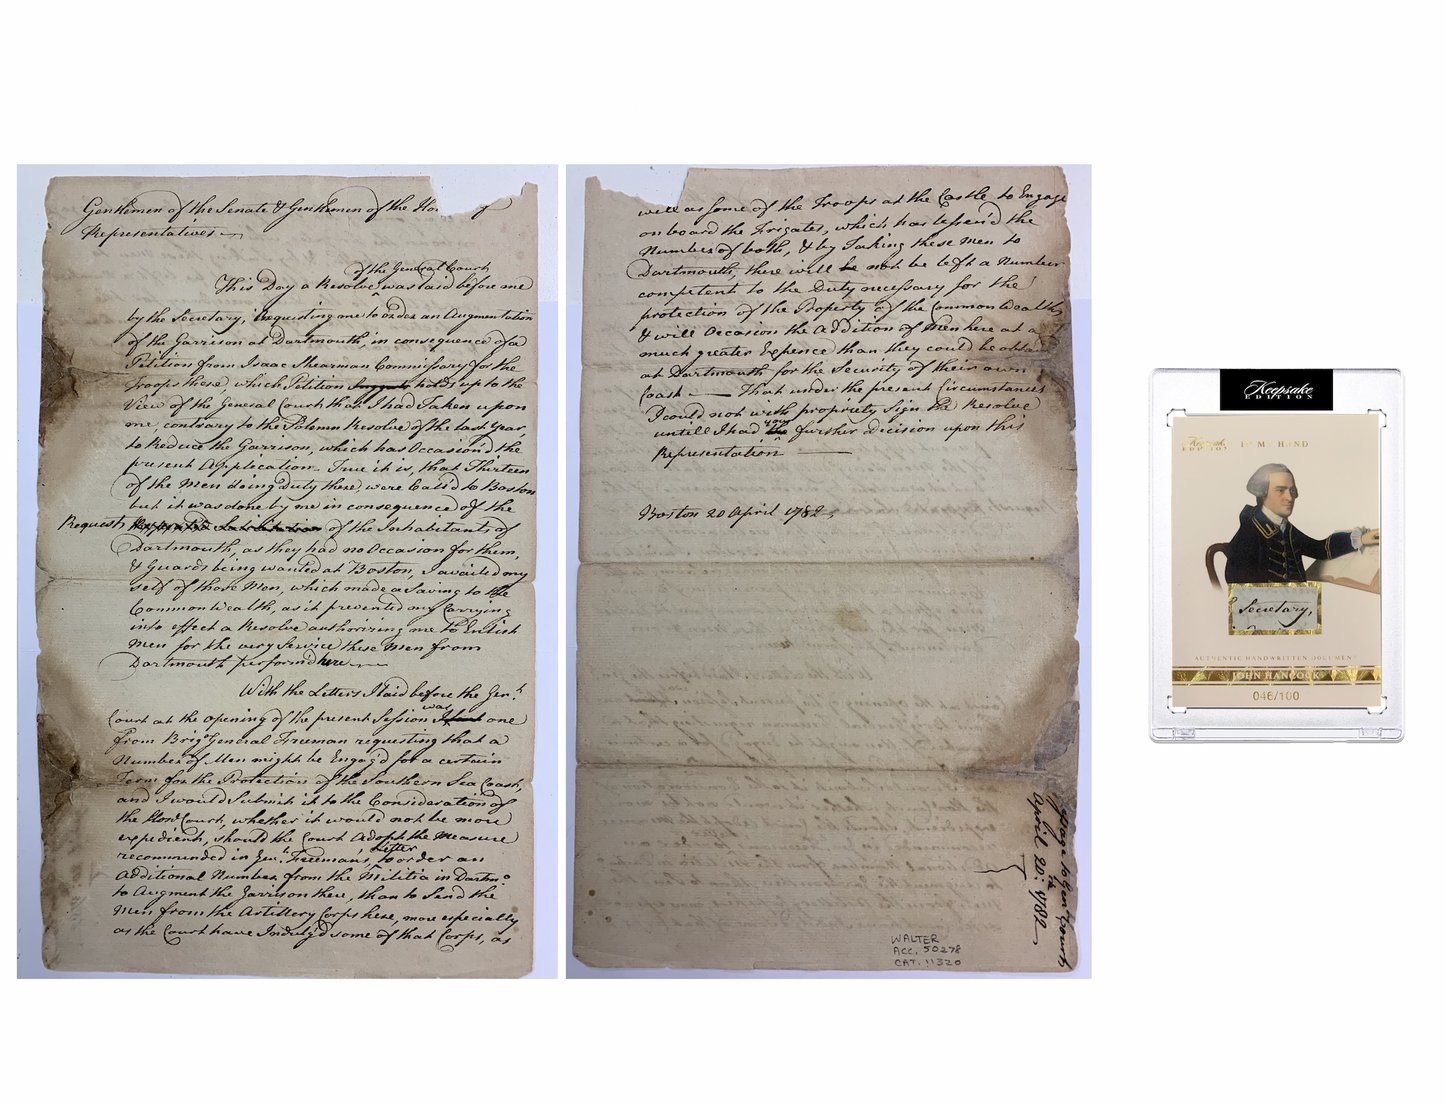 Gentlemen of the Senate & Gentlemen of the Ho of
Representatives
of the General Court
This Day a Resolve was laid before me
by the Secretary, Requesting me to order an Augmentation
of the Garrison at Dartmouth, in consequence of a
Petition from Isaac Shearman Commissary for the
Troops there, which Petition holds up to the
View of the General Court that I had Taken upon
me, contrary to the Solemn Resolve of the last Year
to Reduce the Garrison, which has Occasion'd the
present Application. True it is, that Thirteen
of the Men doing Duty there, were Call'd to Boston
but it was done by me in consequence of the
Requests of the Inhabitants of
Dartmouth, as they had no Occasion for them,
& Guards being wanted at Boston, I availed my
self of those Men, which made a Saving to the
Common Wealth, as it prevented my Carrying
into effect a Resolve authorizing me to Enlist
Men for the very Service these Men from
Dartmouth perform'd here
With the Letters I laid before the Genl
Court at the opening of the present Session was one
from Brigr General Freeman requesting that a
Number of Men might be Engag'd for a certain
Term for the Protection of the Southern Sea Coast,
and I would Submit it to the Consideration of
the Honl Court, whether it would not be more
expedient, should the Court Adopt the Measure
recommended in Genl Freeman's Letter, to order an
Additional Number from the Militia in Dartmo
to Augment the Garrison there, than to Send the
Men from the Artillery Corps here, more especially
as the Court have Indulg'd some of that Corps, as
well as some of the Troops at the Castle to Engage
on board the Frigates, which has lessen'd the
Number of both, & by Taking these Men to
Dartmouth, there will not be left a Number
competent to the Duty necessary for the
protection of the Property of the Common Wealth,
& will Occasion the Addition of Men here at a
much greater Expence than they could be obtain
at Dartmouth for the Security of their own
Coast — That under the present Circumstances
I could not with propriety Sign the Resolve
untill I had your further decision upon this
Representation
Boston 20 April 1782
Message to Gen Court
April 20: 1782
WALTER
ACC. 50278
CAT. 11320
Keepsake
EDITION
Keepsake
EDITION
HAND
Secretary,
AUTHENTIC HANDWRITTEN DOCUMENT
JOHN HANCOCK
046/100